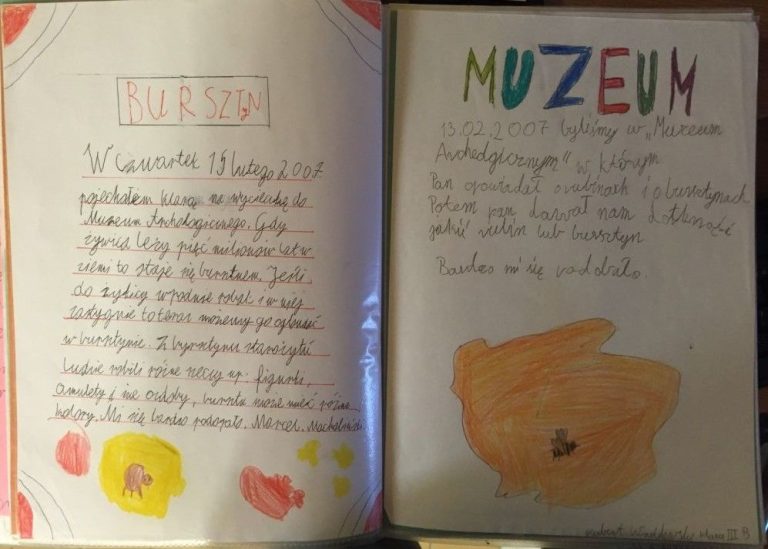 BURSZTYN
W czwartek 15 lutego 2007
pojechałem klasą na wycieczkę do
Muzeum Archologicznego. Gdy
żywica leży pięć milionów lat w
ziemi to staje się bursztnem. Jeśli
do żywicy wpadnie robak i w niej
zastygnie to teraz możemy go oglondać
w bursztynie. Z byrsztynu starożytni
ludzie robili różne rzeczy np. figurki,
amulety i ine ozdoby, bursztn może mieć różne
kolory. Mi się bardzo podobało. Marcel
MUZEUM
13.02.2007 byliśmy w „Muzeum
Archeologicznym" w którym
Pan opowiadał o rubinach i o bursztynach
Potem pan dawał nam do
jakiś rubin lub bursztyn
Bardzo mi się poddbało.
klasa III B